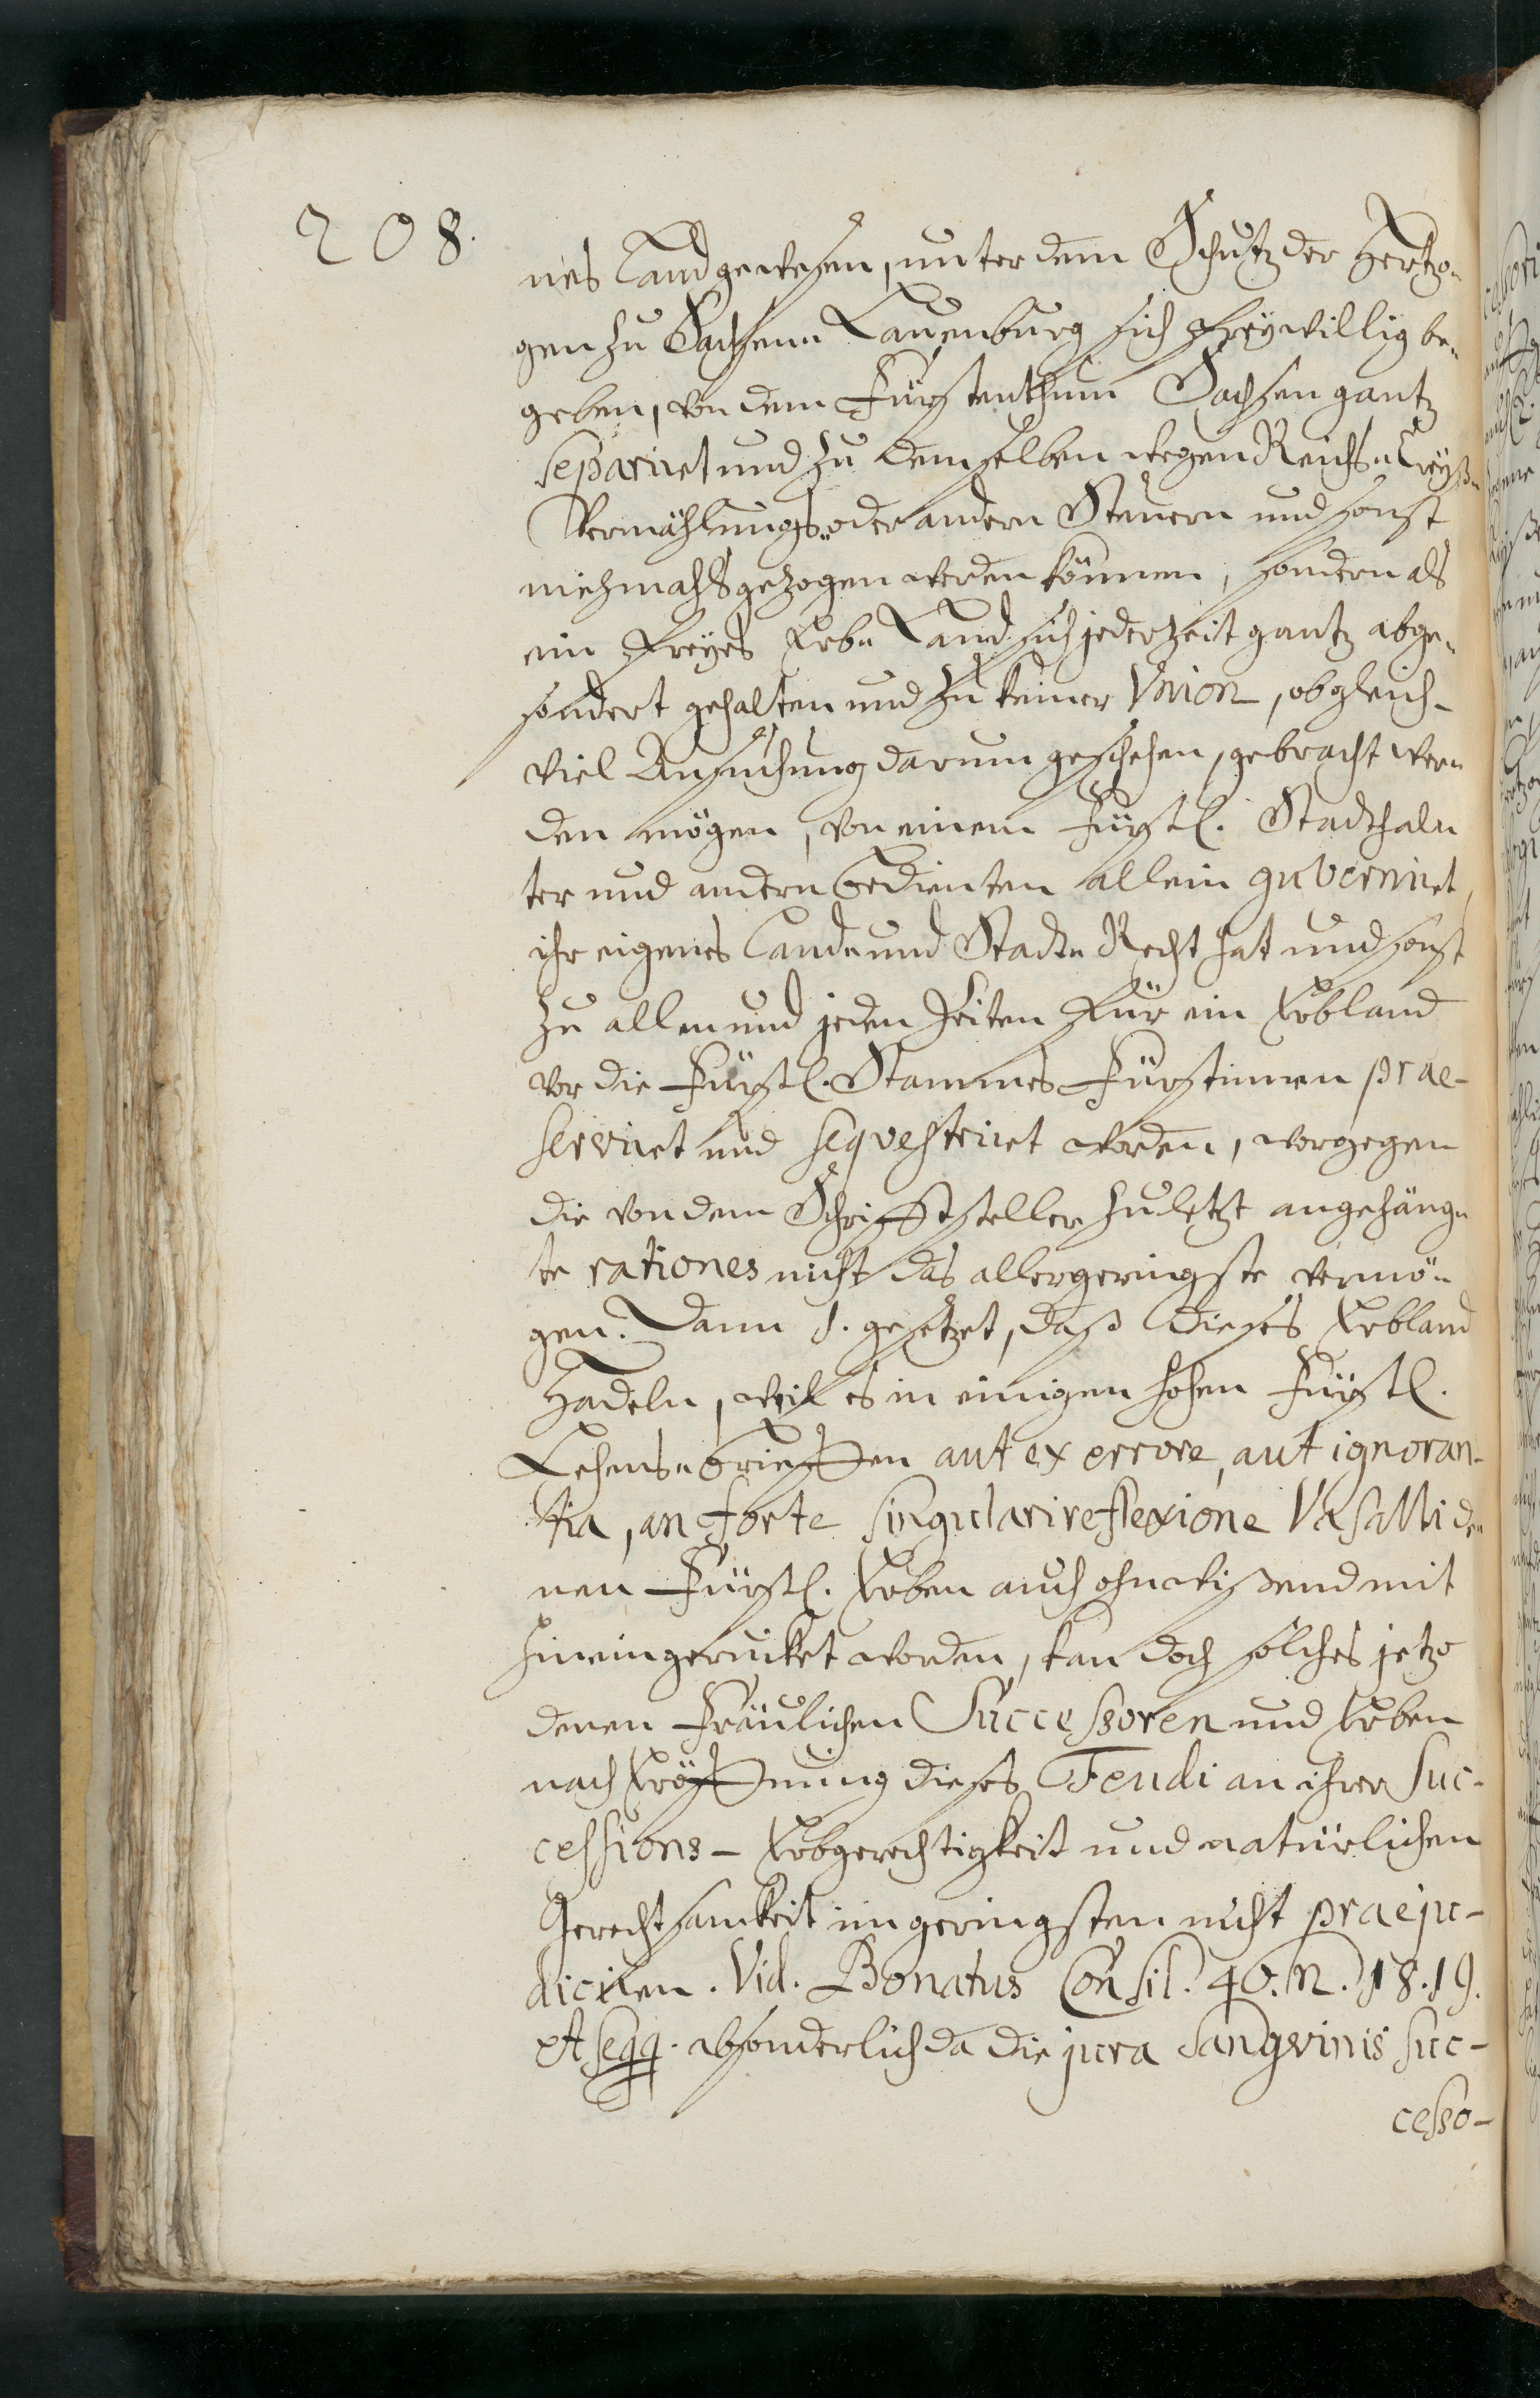 208.
nes Land gewesen, unter dem Schutz der Hertzo-
gen zu Sachsen-Lauenburg sich freywillig be-
geben, von dem Fürstenthum Sachsen gantz
separiret und zu demselben wegen Reichs-Creyß-
Vermählungs- oder andern Steuern und sonst
niehmahls gezogen werden können, sondern als
ein freyes Erb-Land sich jederzeit gantz abge-
sondert gehalten und zu keiner Vnion, obgleich
viel Ansuchung darum geschehen, gebracht wer-
den mögen, von einem Fürstl. Stadthal-
ter und andern bedienten allein guberniret,
ihr eigenes Land- und Stadt-Recht hat und sonst
zu allen und jeden Zeiten für ein Erbland
vor die Fürstl. Stammes Fürstinnen prae-
serviret und seqvestriret worden, worgegen
die von dem Schrifftsteller zuletzt angehäng-
te rationes nicht das allergeringste vermö-
gen. Dann 1. gesetzet, daß dieses Erbland
Hadeln, weil es in einigen hohen Fürstl.
Lehens-brieffen aut ex errore, aut ignoran-
tia, an forte singulari reflexione Vasalli de-
nen Fürstl. Erben auch ohnwißend mit
hineingerücket worden, kan doch solches jetzo
denen Fräulichen Successoren und Erben
nach Eröffnung dieses Feudi an ihrer Suc-
cessions-Erbgerechtigkeit und natürlichen
Gerechtsamkeit im geringsten nicht praeju-
diciren. Vid. Bonatus Consil. 40. n. 18. 19.
et seqq. absonderlich da die jura sangvinis suc-
cesso-